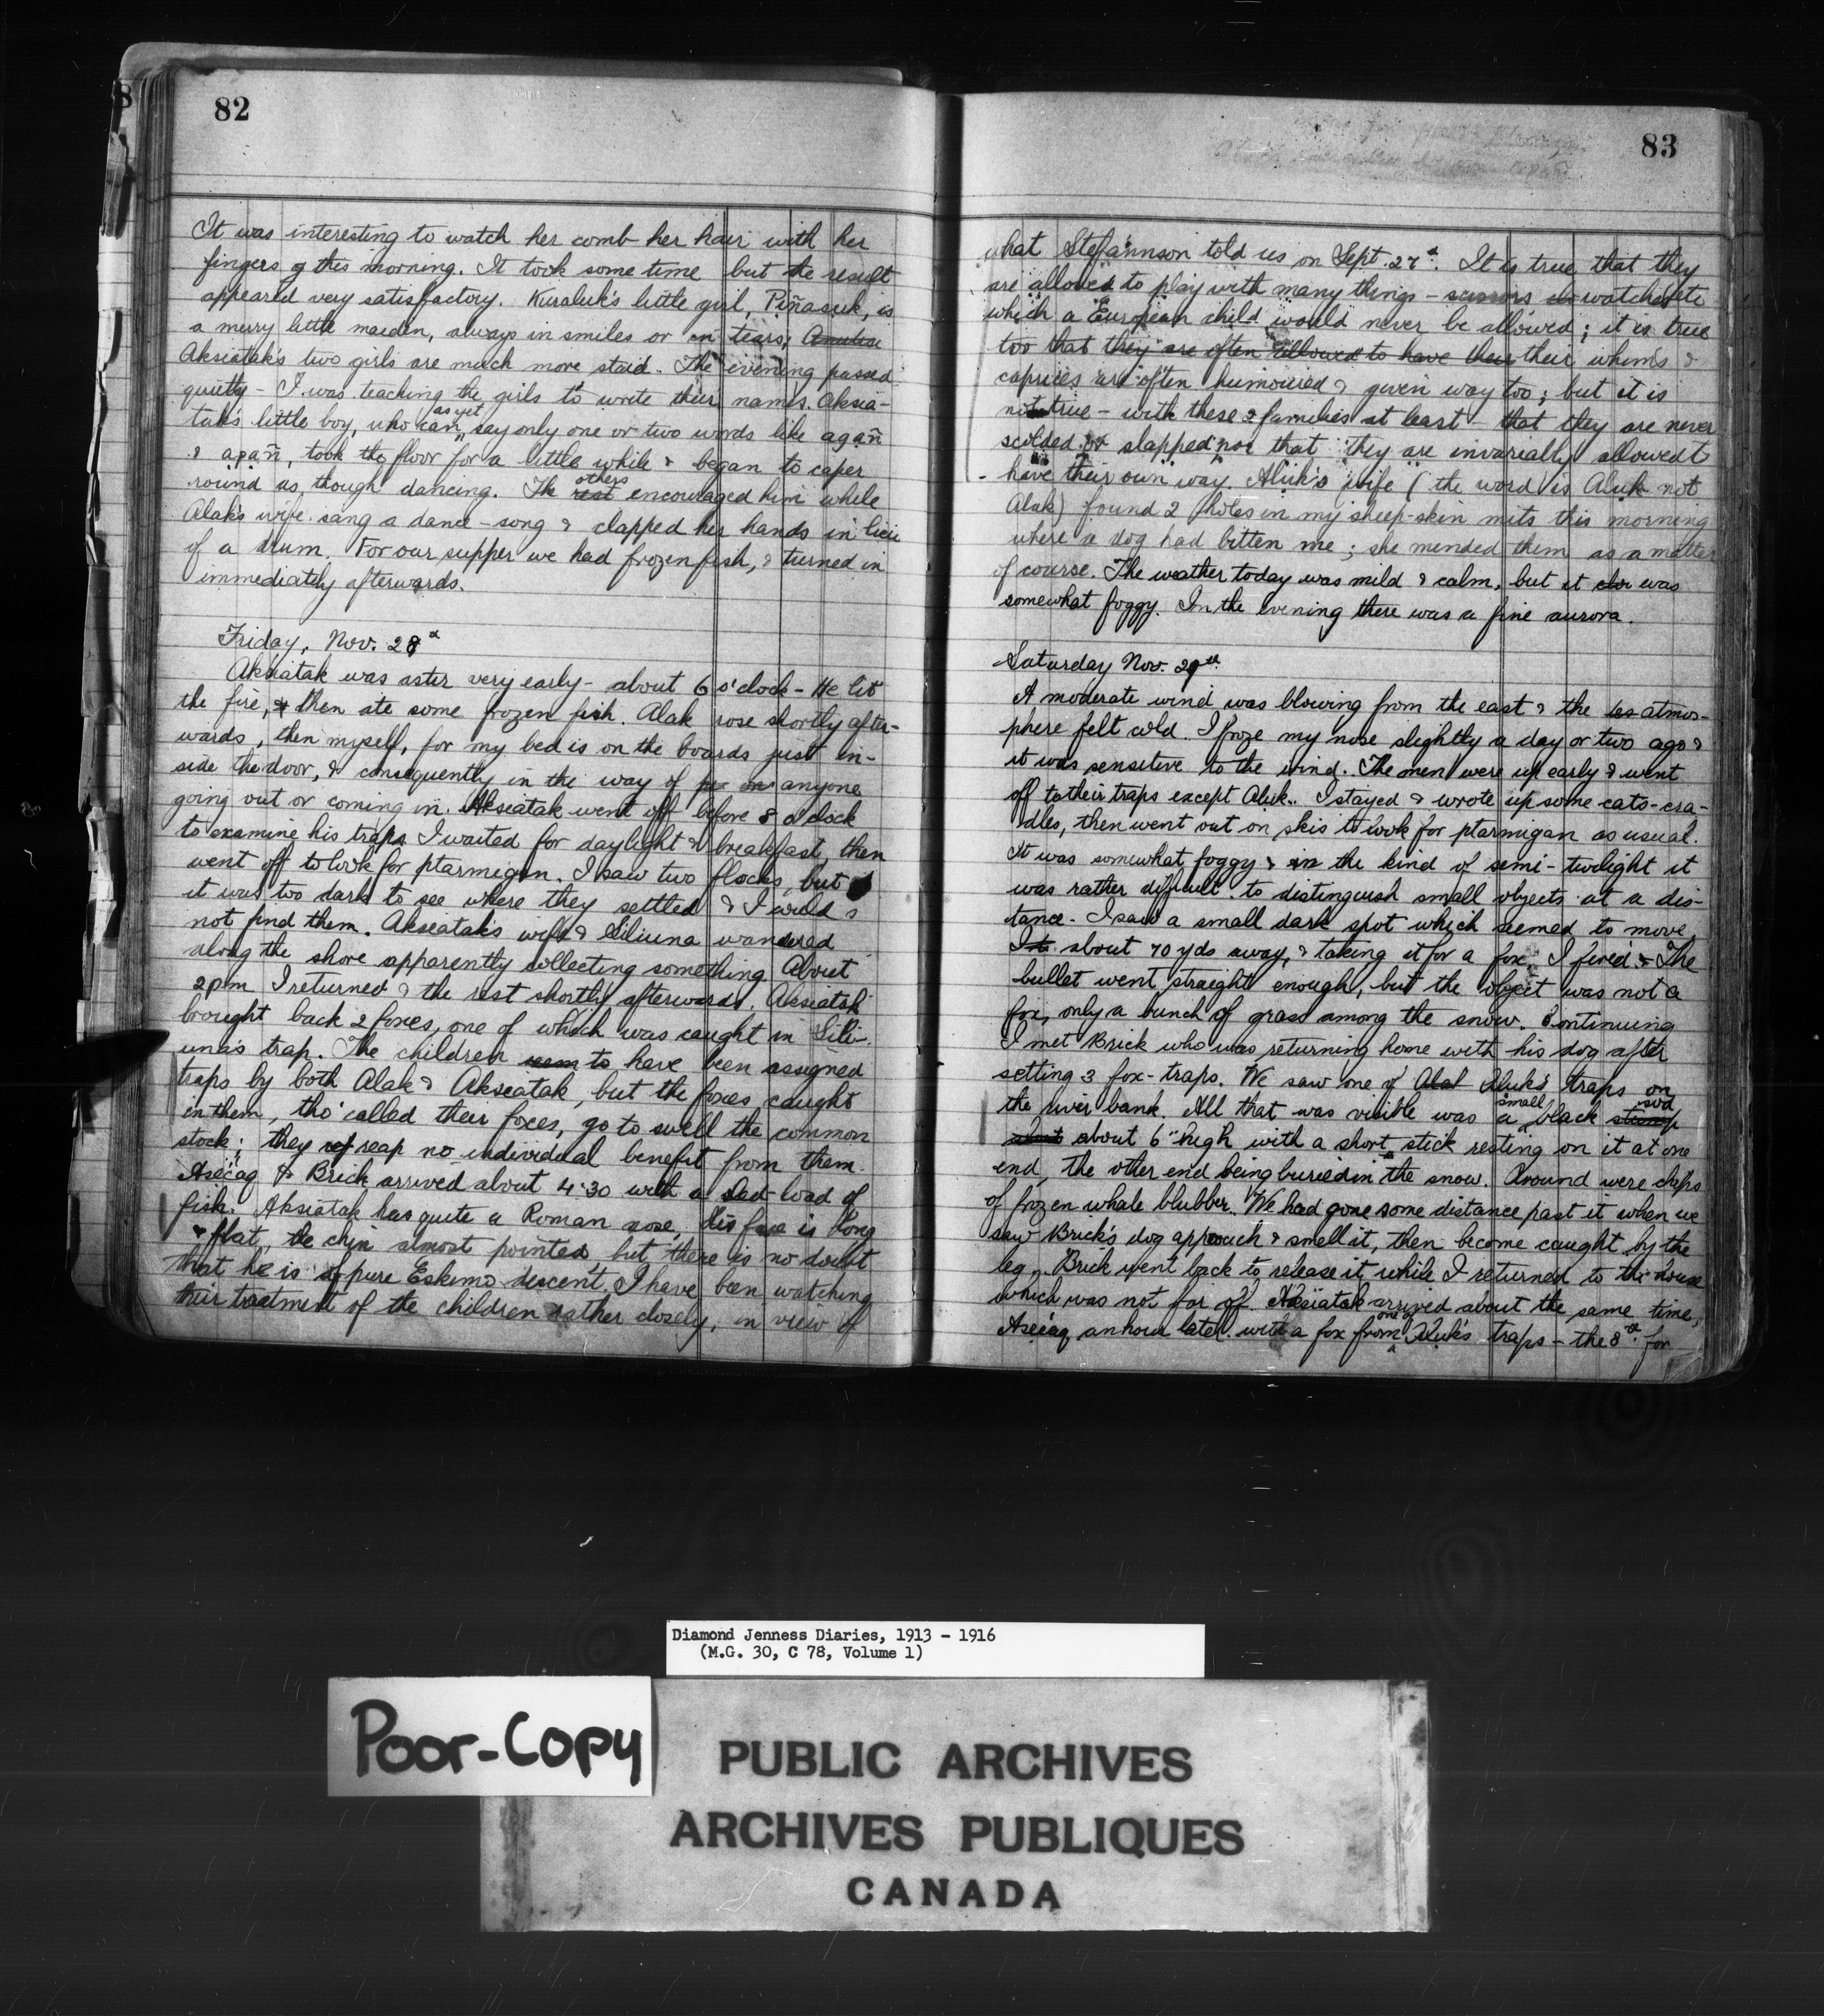 82
It was interesting to watch her comb her hair with her
fingers this morning. It took some time but the result
appeared very satisfactory. Kuraluk's little girl, Piñasuk, is
a merry little maiden, always in smiles or in tears;
Aksiatak's two girls are much more staid. The evening passed
quietly – I was teaching the girls to write their names. Aksia-
tak's little boy, who can as yet say only one or two words like agañ
& apañ, took the floor for a little while & began to caper
round as though dancing. The rest others encouraged him while
Alak's wife sang a dance-song & clapped her hands in lieu
of a drum. For our supper we had frozen fish, & turned in
immediately afterwards.
Friday, Nov. 28th
Aksiatak was astir very early – about 6 o'clock – He lit
the fire, & then ate some frozen fish. Alak rose shortly after-
wards, then myself, for my bed is on the boards just in-
side the door, & consequently in the way of anyone
going out or coming in. Aksiatak went off before 8 o'clock
to examine his traps. I waited for daylight & breakfast, then
went off to look for ptarmigan. I saw two flocks, but
it was too dark to see where they settled & I could
not find them. Aksiatak's wife & Siliuna wandered
along the shore apparently collecting something. About
2 pm I returned & the rest shortly afterwards. Aksiatak
brought back 2 foxes, one of which was caught in Sili-
una's trap. The children seem to have been assigned
traps by both Alak & Aksiatak, but the foxes caught
in them, tho' called their foxes, go to swell the common
stock; they reap no individual benefit from them.
Asecaq & Brick arrived about 4.30 with a sled-load of
fish. Aksiatak has quite a Roman nose; his face is long
& flat, the chin almost pointed, but there is no doubt
that he is of pure Eskimo descent. I have been watching
their treatment of the children rather closely, in view of
83
what Stefánnson told us on Sept. 27th. It is true that they
are allowed to play with many things – scissors watches etc
which a European child would never be allowed; it is true
too that they are often allowed to have their their whims &
caprices are often humoured & given way too; but it is
not true – with these 2 families at least – that they are never
scolded or slapped nor that they are invariably allowed to
have their own way. Aluk's wife (the word is Aluk not
Alak) found 2 holes in my sheep-skin mits this morning
where a dog had bitten me; she mended them as a matter
of course. The weather today was mild & calm, but it was
somewhat foggy. In the evening there was a fine aurora.
Saturday Nov. 29th.
A moderate wind was blowing from the east & the atmos-
phere felt cold. I froze my nose slightly a day or two ago &
it was sensitive to the wind. The men were up early & went
off to their traps except Aluk. I stayed & wrote up some cats-cra-
dles, then went out on skis to look for ptarmigan as usual.
It was somewhat foggy & in the kind of semi-twilight it
was rather difficult to distinguish small objects at a dis-
tance. I saw a small dark spot which seemed to move,
about 70 yds away, & taking it for a fox I fired. The
bullet went straight enough, but the object was not a
fox, only a bunch of grass among the snow. Continuing
I met Brick who was returning home with his dog after
setting 3 fox-traps. We saw one of Alak Aluk's traps on
the river bank. All that was visible was a small black stump sod
about 6" high with a short stick resting on it at one
end, the other end being buried in the snow. Around were chips
of frozen whale blubber. We had gone some distance past it when we
saw Brick's dog approach & smell it, then become caught by the
leg. Brick went back to release it while I returned to the house
which was not far off. Aksiatak arrived about the same time,
Asecaq an hour later with a fox from one of Aluk's traps – the 8th for
Diamond Jenness Diaries, 1913 - 1916
(M.G. 30, C 78, Volume 1)
Poor-Copy
PUBLIC ARCHIVES
ARCHIVES PUBLIQUES
CANADA